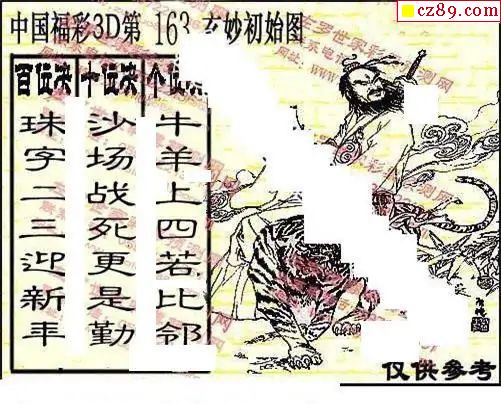 cz89.com
中国福彩3D第 163 玄妙初始图
百位决 十位决 个位决
珠字二三迎新年
沙场战死更是勤
牛羊上四若比邻
仅供参考